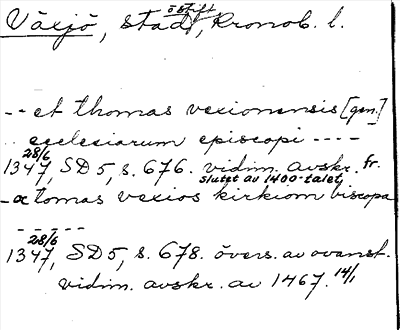 Växjö, stad o stift, Kronob. l.
-- et thomas vexionensis [gen.]
ecclesiarum episcopi ----
1347 28/6, SD 5, s. 676. vidim. avskr. fr. slutet av 1400-talet,
-- tomas vexios kirkiom biscopa
-----
1347 28/6, SD 5, s. 678. övers. av ovanst.
vidim. avskr. av 1467. 14/1